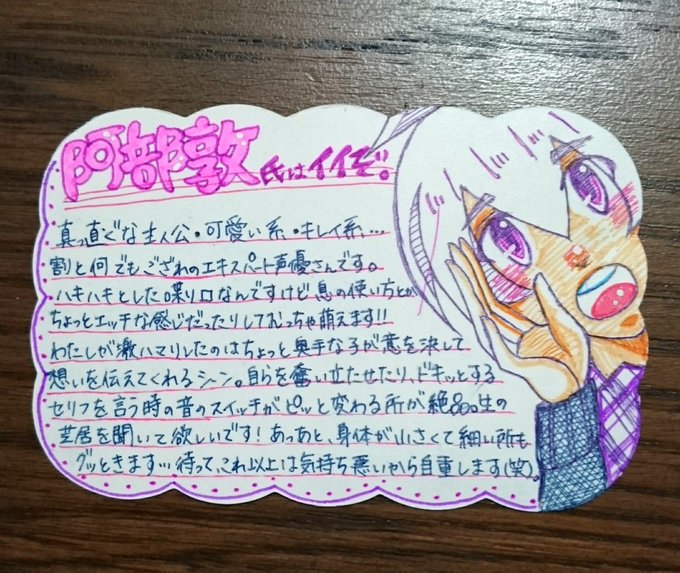 阿部敦氏はイイぞ。
真っ直ぐな主人公・可愛い系・キレイ系…
割と何でもござれのエキスパート声優さんです。
ハキハキとした喋り口なんですけど息の使い方とか
ちょっとエッチな感じだったりしてむっちゃ萌えます!!
わたしが激ハマりしたのはちょっと奥手な子が意を決して
想いを伝えてくれるシーン。自らを奮い立たせたり、ドキッとする
セリフを言う時の音のスイッチがピッと変わる所が絶品。生の
芝居を聞いて欲しいです!あっあと、身体が小さくて細い所も
グッときます…待って、これ以上は気持ち悪いから自重します(笑)。